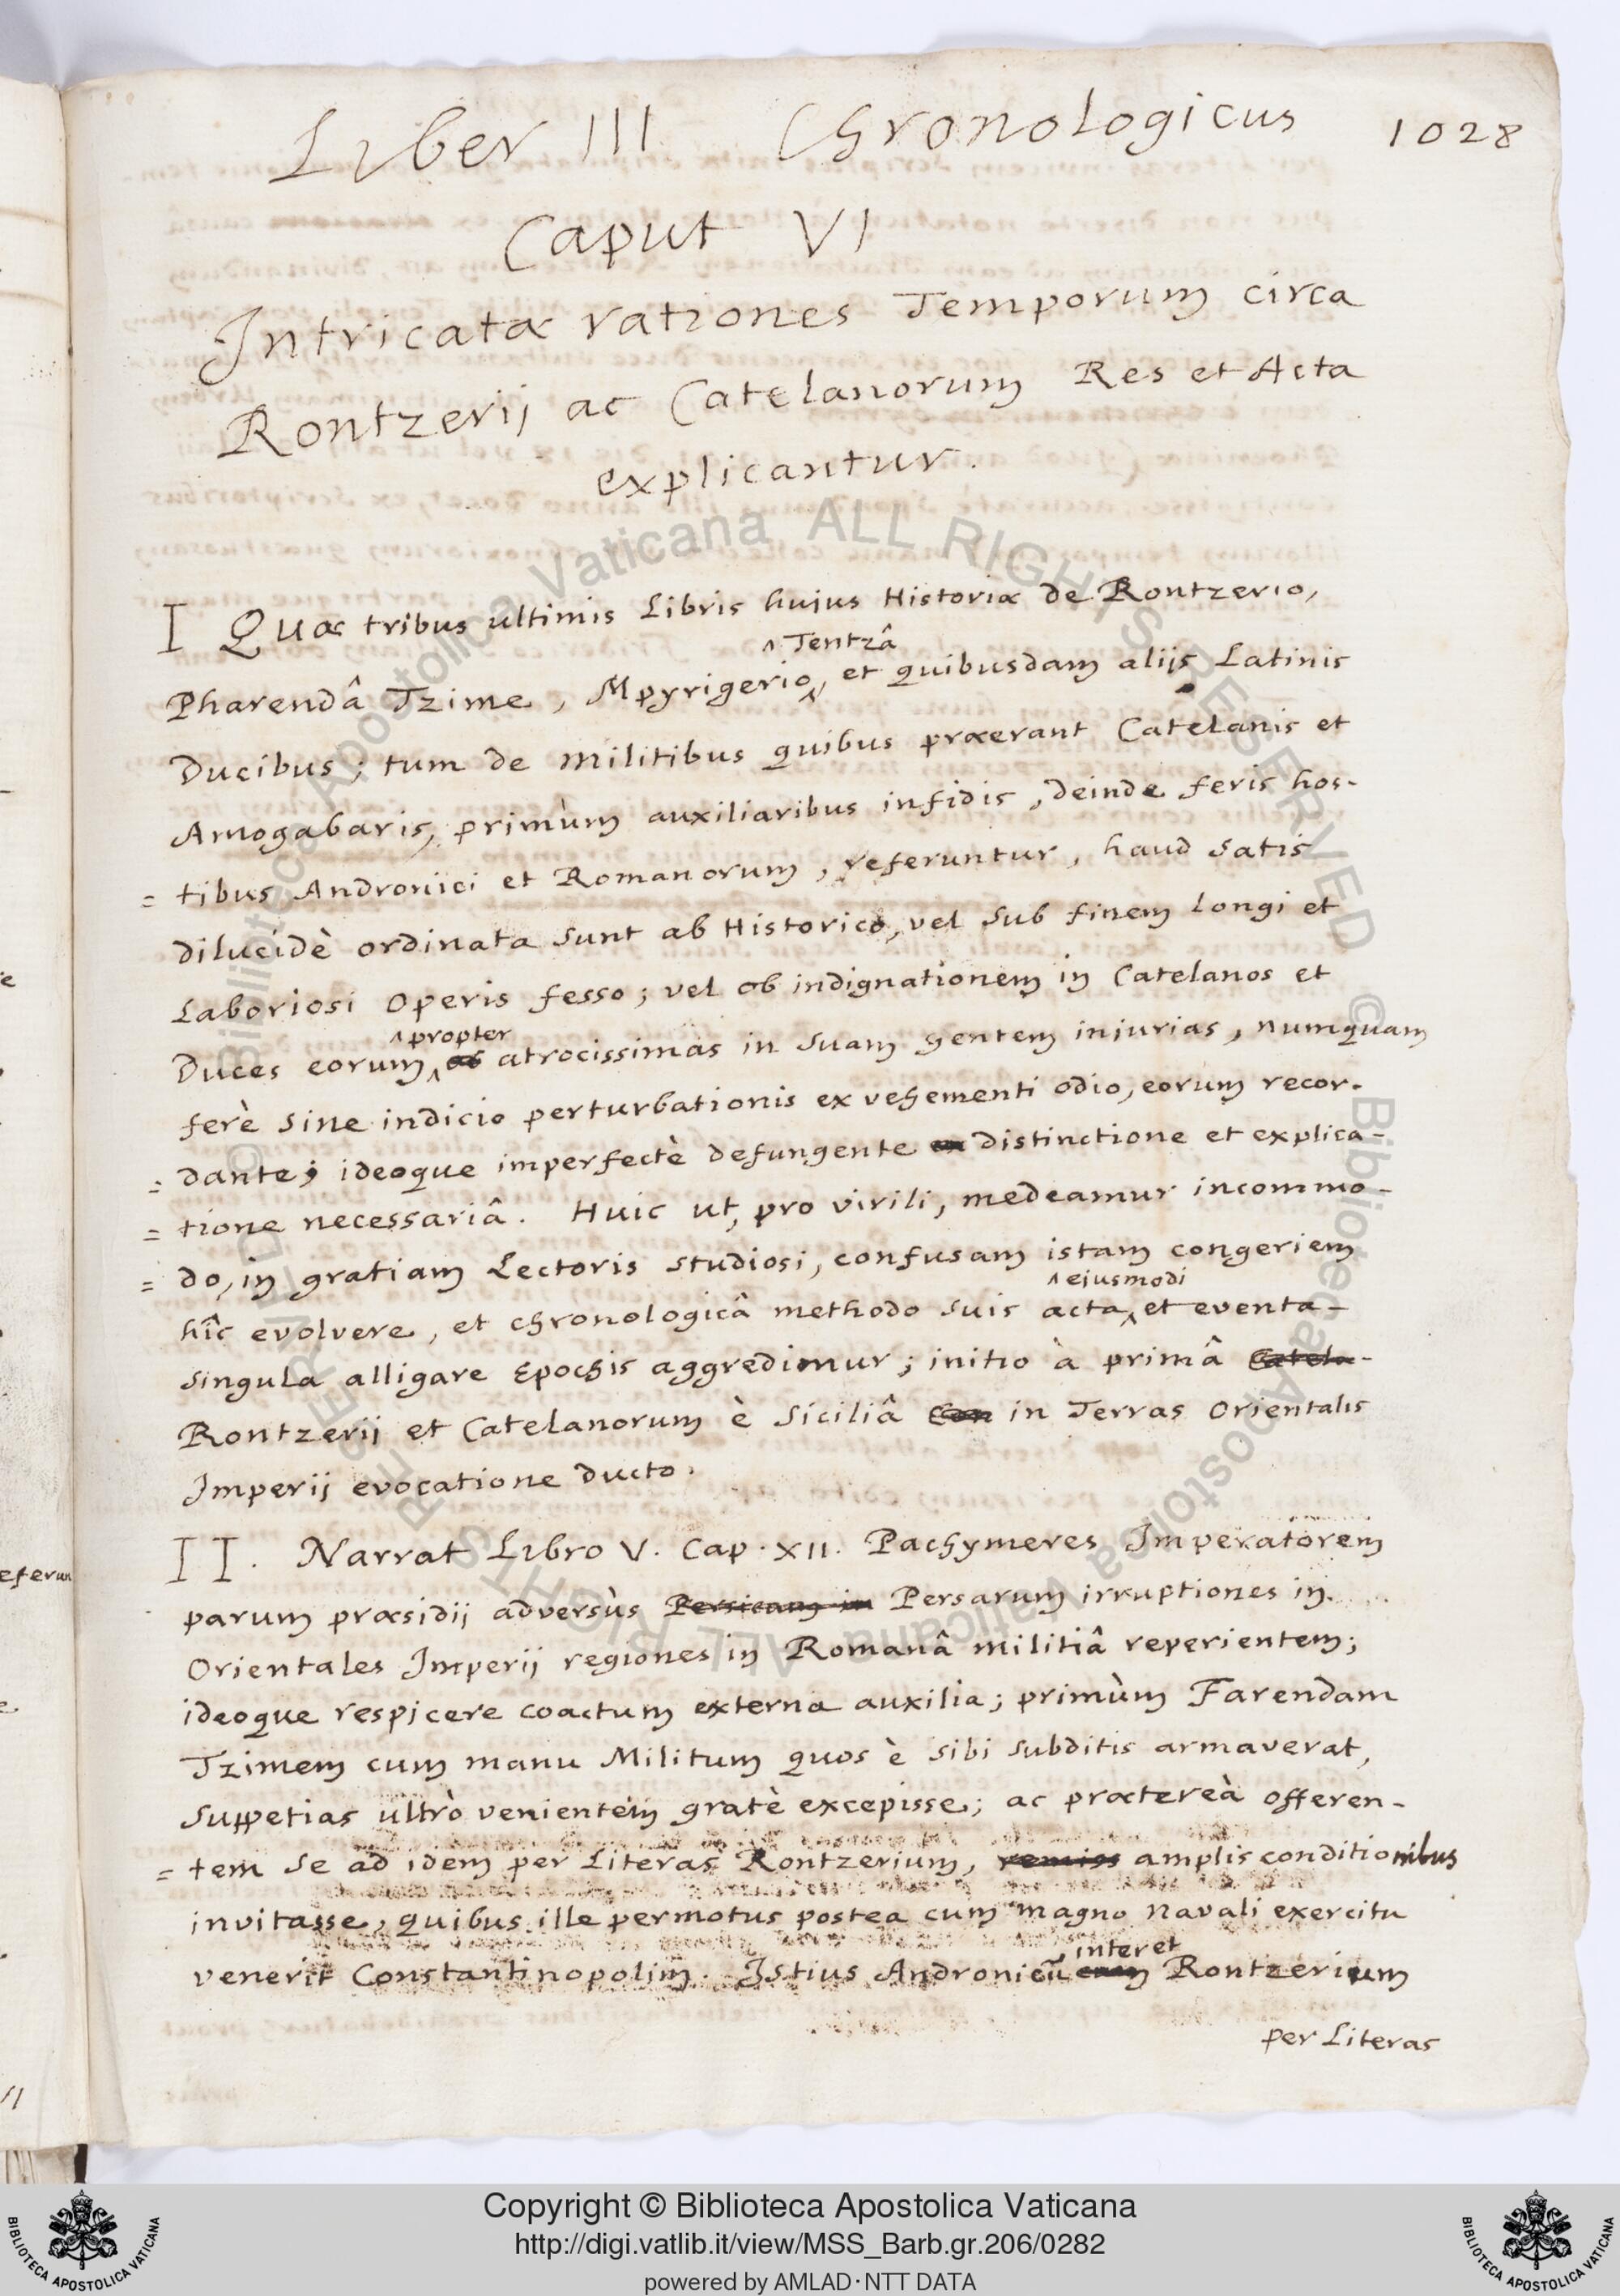 Liber III Chronologicus 1028
Caput VI
Intricatæ rationes Temporum circa
Rontzerij ac Catelanorum Res et Acta
explicantur.
I Quæ tribus ultimis Libris hujus Historiæ de Rontzerio,
^ Tentzâ
Pharendâ Tzime, Mpyrigerio, et quibusdam alijs Latinis
Ducibus; tum de militibus quibus præerant Catelanis et
Amogabaris, primùm auxiliaribus infidis, deinde feris hos-
= tibus Andronici et Romanorum, referuntur, haud satis
dilucidè ordinata sunt ab Historico, vel sub finem longi et
Laboriosi Operis fesso; vel ob indignationem in Catelanos et
^ propter
Duces eorum ^ ob atrocissimas in suam gentem injurias, numquam
ferè sine indicio perturbationis ex vehementi odio, eorum recor-
= dante; ideoque imperfectè defungente distinctione et explica-
= tione necessariâ. Huic ut, pro virili, medeamur incommo-
= do, in gratiam Lectoris studiosi, confusam istam congeriem
^ ejusmodi
hîc evolvere, et chronologicâ methodo suis acta ^ et eventa-
singula alligare Epochis aggredimur; initio à primâ Catela-
Rontzerij et Catelanorum è Siciliâ Con in Terras Orientalis
Imperij evocatione ducto.
II. Narrat Libro V. Cap. XII. Pachymeres Imperatorem
parum præsidij adversùs Persicam in Persarum irruptiones in
Orientales Imperij regiones in Romanâ militiâ reperientem;
ideoque respicere coactum externa auxilia; primùm Farendam
Tzimem cum manu Militum quos è sibi subditis armaverat,
suppetias ultrò venientem gratè excepisse; ac prætereà offeren-
= tem se ad idem per Literas Rontzerium, amplis conditionibus
invitasse, quibus ille permotus postea cum magno navali exercitu
inter et
venerit Constantinopolim. Istius Andronicũ Rontzerium
per Literas
Copyright © Biblioteca Apostolica Vaticana
http://digi.vatlib.it/view/MSS_Barb.gr.206/0282
powered by AMLAD·NTT DATA
BIBLIOTECA APOSTOLICA VATICANA
BIBLIOTECA APOSTOLICA VATICANA
© Biblioteca Apostolica Vaticana ALL RIGHTS RESERVED
© Biblioteca Apostolica Vaticana ALL RIGHTS RESERVED